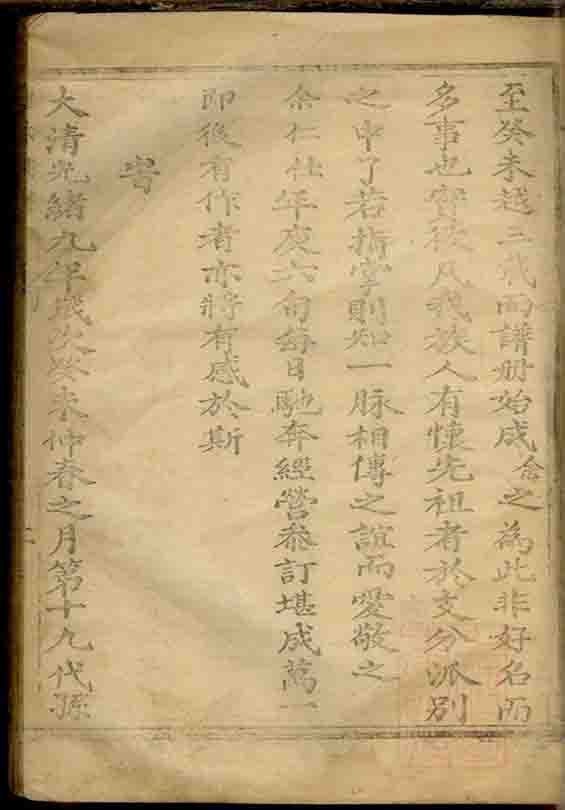 至癸未越三載而譜册始成余之為此非好名而
多事也實後凡我族人有懷先祖者於支分派別
之中了若指掌則知一脉相傳之誼而愛敬之
余仁社年庚六旬每日馳奔經營叅訂堪成萬一
即後有作者亦將有感於斯
大清光緒九年歲次癸未仲春之月第十九代孫